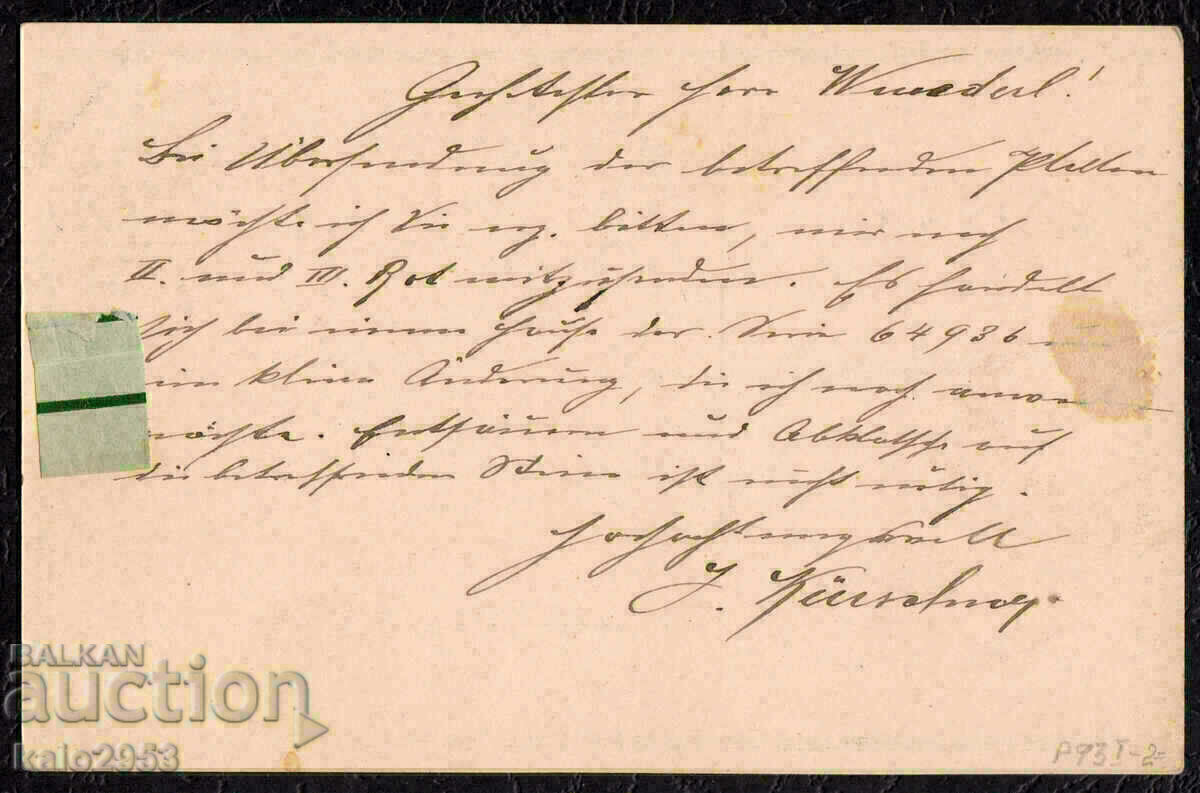 Geehrtester Herr Wunderl!
Bei Übersendung der betreffenden Platten
möchte ich Sie erg. bitten, mir noch
II. und III. Rot mitzusenden. Es handelt
sich bei einem Hause der Serie 64936 um
eine kleine Änderung, die ich noch
möchte. Entsäuern und Abklatsche auf
die betreffenden Steine ist nicht nötig.
Hochachtungsvoll
J. Kürschner
BALKAN
auction
kalo2953
P93 I-2-